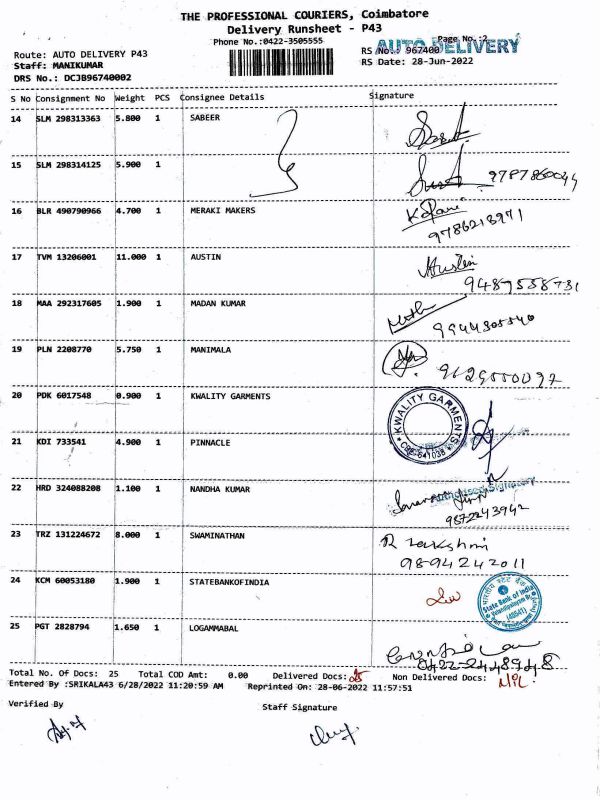 THE PROFESSIONAL COURIERS, Coimbatore
Delivery Runsheet - P43
Phone No.:0422-3505555
Page No.:2
AUTO DELIVERY
Route: AUTO DELIVERY P43
RS No.: 967400
Staff: MANIKUMAR
RS Date: 28-Jun-2022
DRS No.: DCJB96740002
S No Consignment No Weight PCS Consignee Details Signature
14 SLM 298313363 5.800 1 SABEER
15 SLM 298314125 5.900 1
16 BLR 490790966 4.700 1 MERAKI MAKERS
9786213971
17 TVM 13206001 11.000 1 AUSTIN
Austin
18 MAA 292317605 1.900 1 MADAN KUMAR
19 PLN 2208770 5.750 1 MANIMALA
20 PDK 6017548 0.900 1 KWALITY GARMENTS
KWALITY GARMENTS
CBE-641038
21 KDI 733541 4.900 1 PINNACLE
22 HRD 324088208 1.100 1 NANDHA KUMAR
Authorised Signatory
9872243942
23 TRZ 131224672 8.000 1 SWAMINATHAN
R Lakshmi
9894242011
24 KCM 60053180 1.900 1 STATEBANKOFINDIA
State Bank of India
25 PGT 2828794 1.650 1 LOGAMMABAL
0422-2448948
Total No. Of Docs: 25 Total COD Amt: 0.00 Delivered Docs: 25 Non Delivered Docs: NIL.
Entered By :SRIKALA43 6/28/2022 11:20:59 AM Reprinted On: 28-06-2022 11:57:51
Verified By
Staff Signature